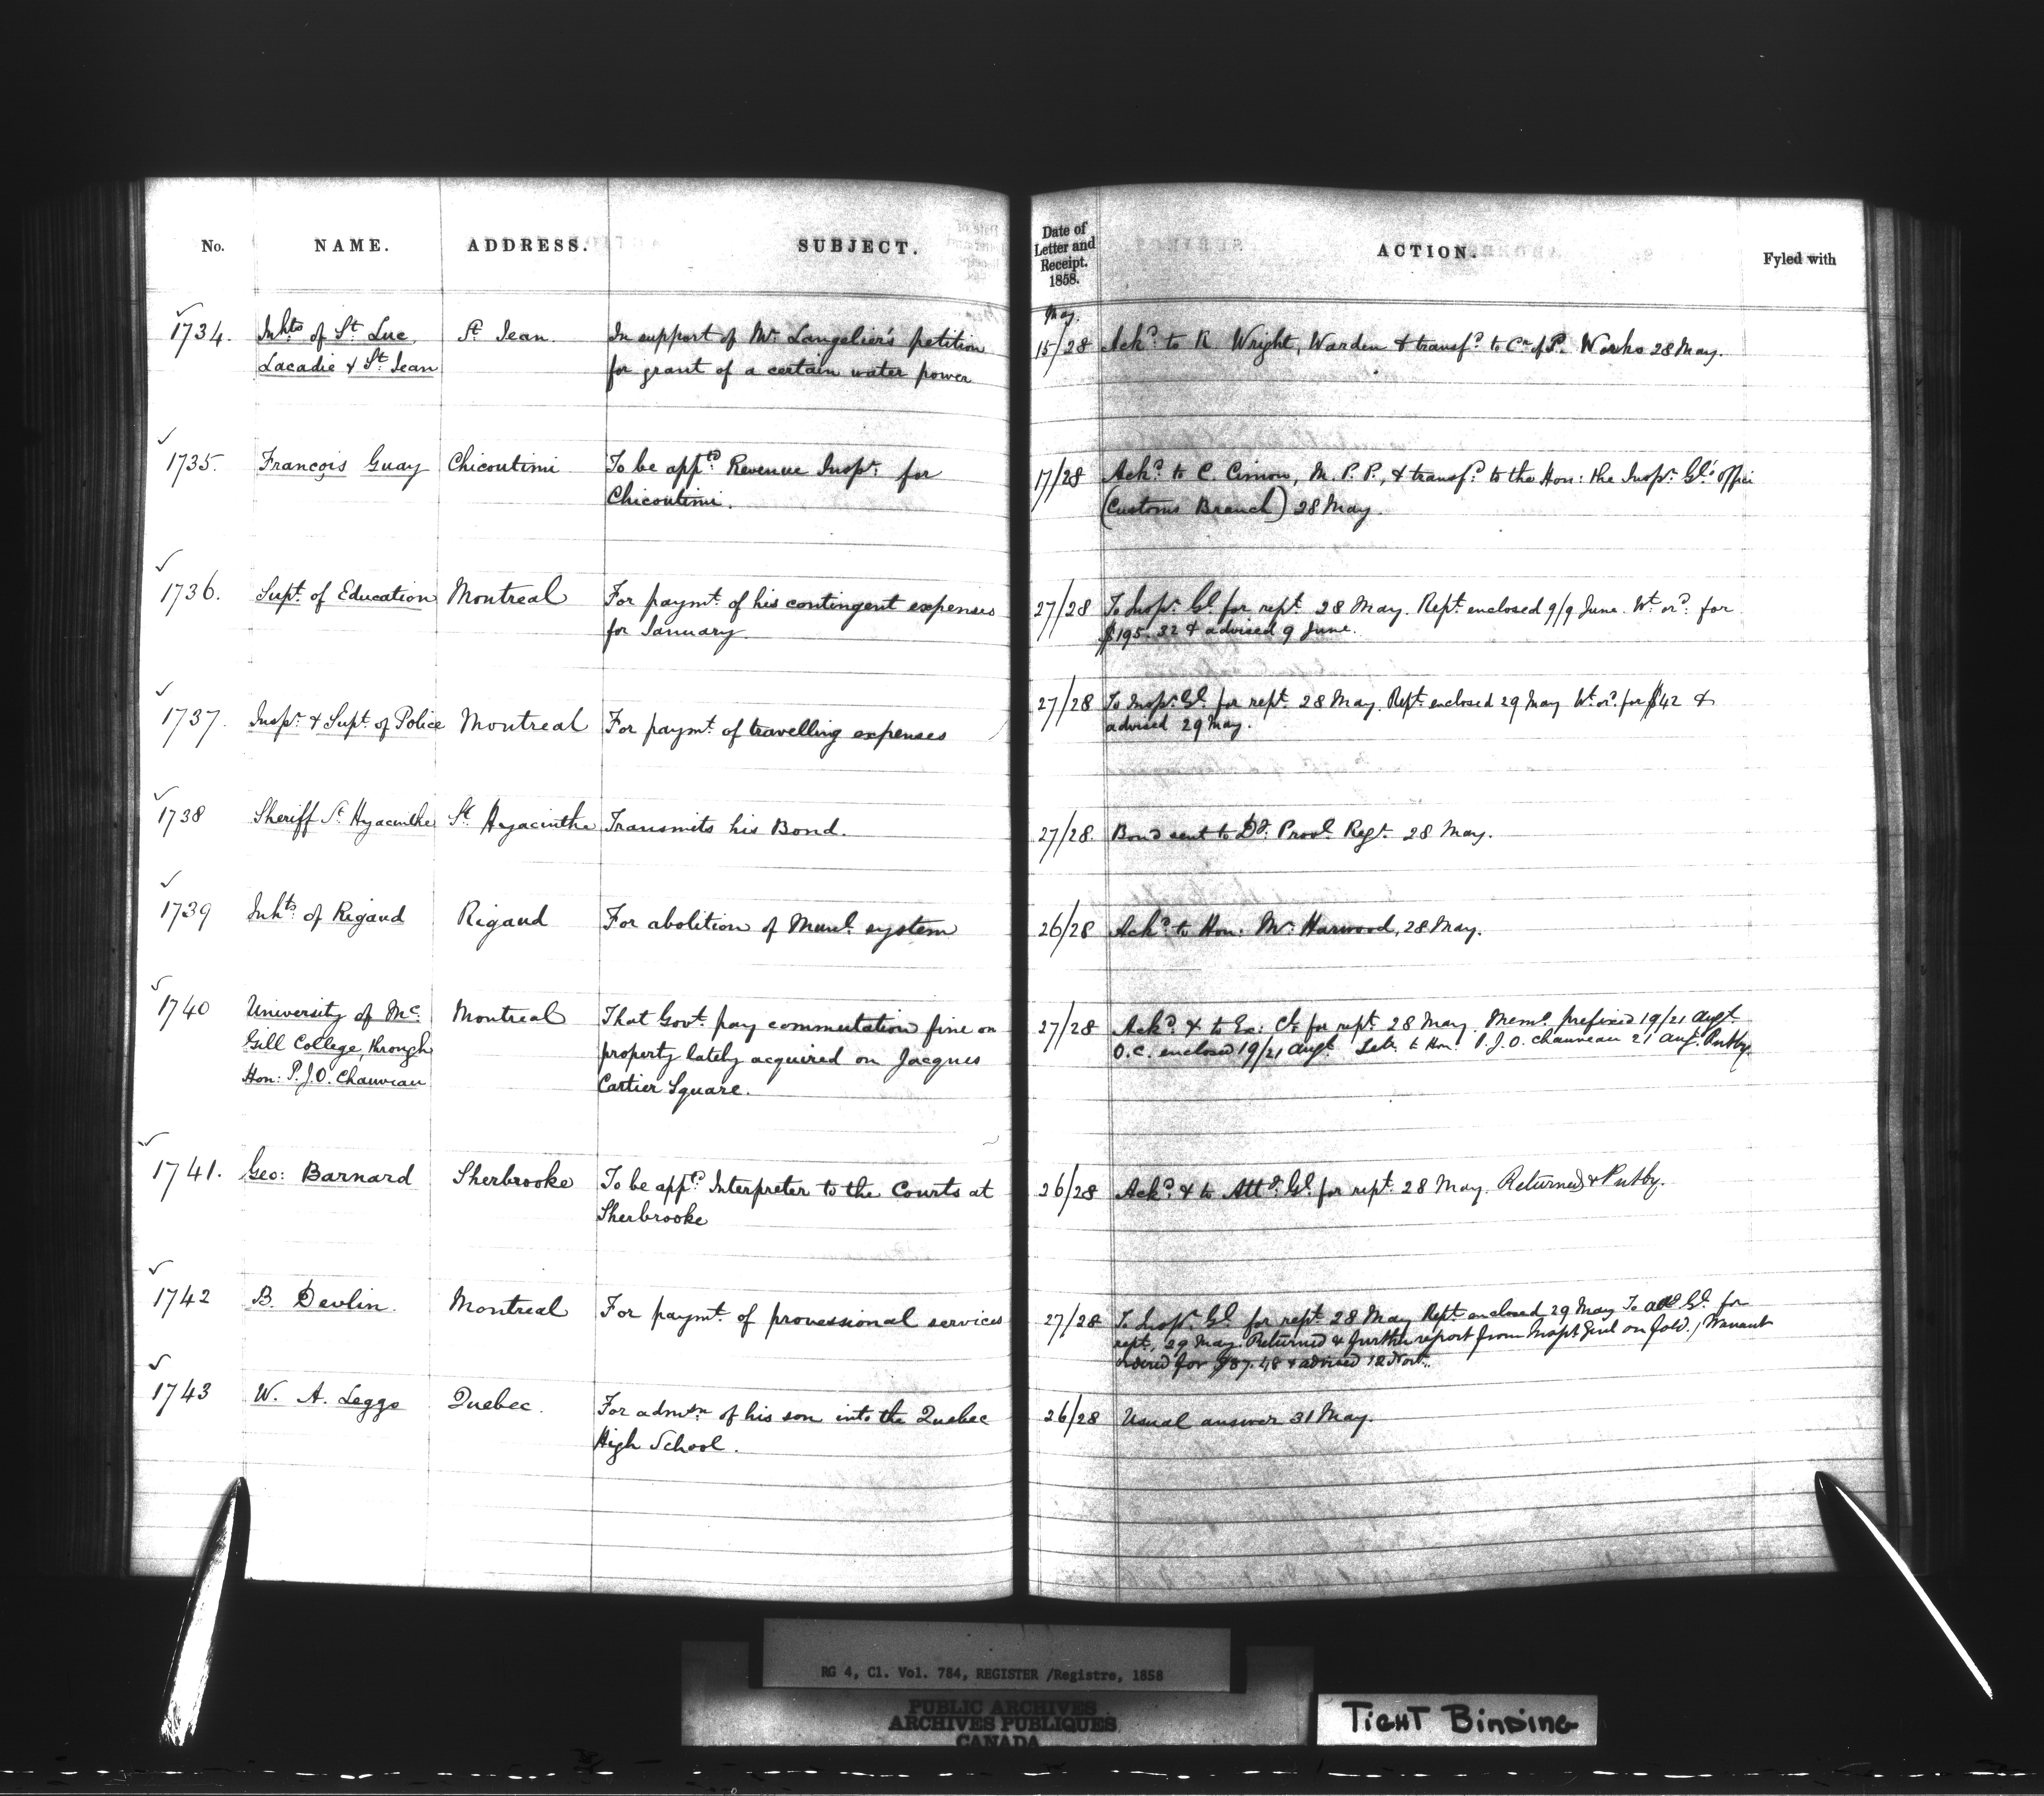 No. NAME. ADDRESS. SUBJECT. Date of Letter and Receipt. 1858. ACTION. Fyled with
May.
1734. Inhts of St Luc, St Jean. In support of Mr Langelier's petition 15/28 Ackd to R Wright, Warden & transfd to Cr of P. Works 28 May.
Lacadie & St Jean for grant of a certain water power
1735. François Guay Chicoutimi To be apptd Revenue Inspr for 17/28 Ackd to C. Cimon, M.P.P., & transfd to the Hon: the Inspr Gl's office
Chicoutimi. (Customs Branch) 28 May.
1736. Supt of Education Montreal For paymt of his contingent expenses 27/28 To Inspr Gl for rept 28 May. Rept enclosed 9/9 June. Wt ord for
for January. $195.32 & advised 9 June.
1737. Inspr & Supt of Police Montreal For paymt of travelling expenses 27/28 To Inspr Gl for rept 28 May. Rept enclosed 29 May Wt ord for $42 &
advised 29 May.
1738 Sheriff St Hyacinthe St Hyacinthe Transmits his Bond. 27/28. Bond sent to Dy Provl Regr 28 May.
1739 Inhts of Rigaud Rigaud For abolition of Munl system 26/28 Ackd to Hon: Mr Harwood, 28 May.
1740 University of Mc Montreal That Govt pay commutation fine on 27/28 Ackd & to Ex: Cl for rept 28 May. Memo prefixed 19/21 Augt
Gill College, through property lately acquired on Jacques O.C. enclosed 19/21 Augt Letr to Hon: P.J.O. Chauveau 21 Aug. Putby.
Hon: P.J.O. Chauveau Cartier Square.
1741. Geo: Barnard Sherbrooke To be appd Interpreter to the Courts at 26/28 Ackd & to Atty Gl for rept 28 May. Returned & Putby.
Sherbrooke
1742 B. Devlin. Montreal For paymt of provessional services 27/28 To Inspr Gl for rept 28 May Rept enclosed 29 May To Gl for
rept, 29 May. Returned & further report from Inspr Genl on / Warrant
ordered for $87.48 & advised
1743 W. A. Leggo Quebec. For admsn of his son into the Quebec 26/28 Usual answer 31 May.
High School.
RG 4, C1. Vol. 784, REGISTER /Registre, 1858
PUBLIC ARCHIVES
ARCHIVES PUBLIQUES
CANADA
TIGHT BINDING